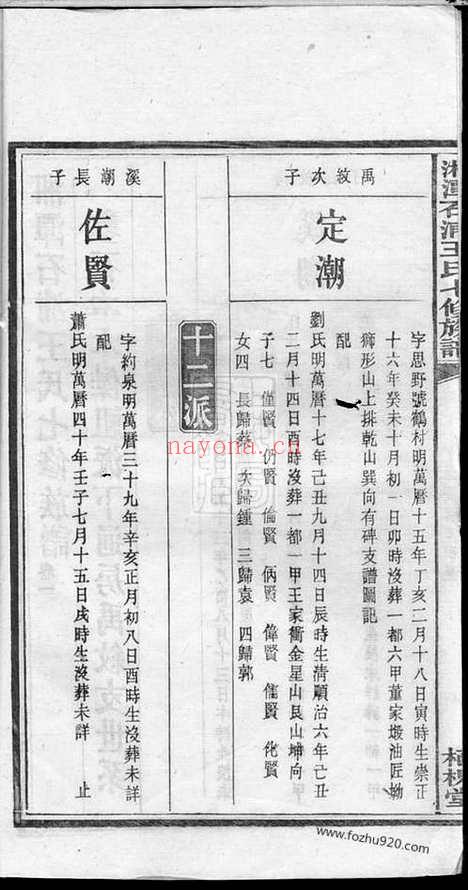 湘潭石浦王氏七修族譜
禹敘次子
定潮
字思野號鶴村明萬曆十五年丁亥二月十八日寅時生崇正
十六年癸未十月初一日卯時沒葬一都六甲董家塅油匠坳
獅形山上排乾山巽向有碑支譜圖記
配
劉氏明萬曆十七年己丑九月十四日辰時生清順治六年己丑
二月十四日酉時沒葬一都一甲王家衝金星山艮山坤向
子七 僅賢 仍賢 倫賢 侢賢 偉賢 傕賢 化賢
女四 長歸蔡 次歸鍾 三歸袁 四歸郭
十二派
溪潮長子
佐賢
字約泉明萬曆三十九年辛亥正月初八日酉時生沒葬未詳
配
蕭氏明萬曆四十年壬子七月十五日戌時生沒葬未詳 止
nayona.cn
www.fozhu920.com